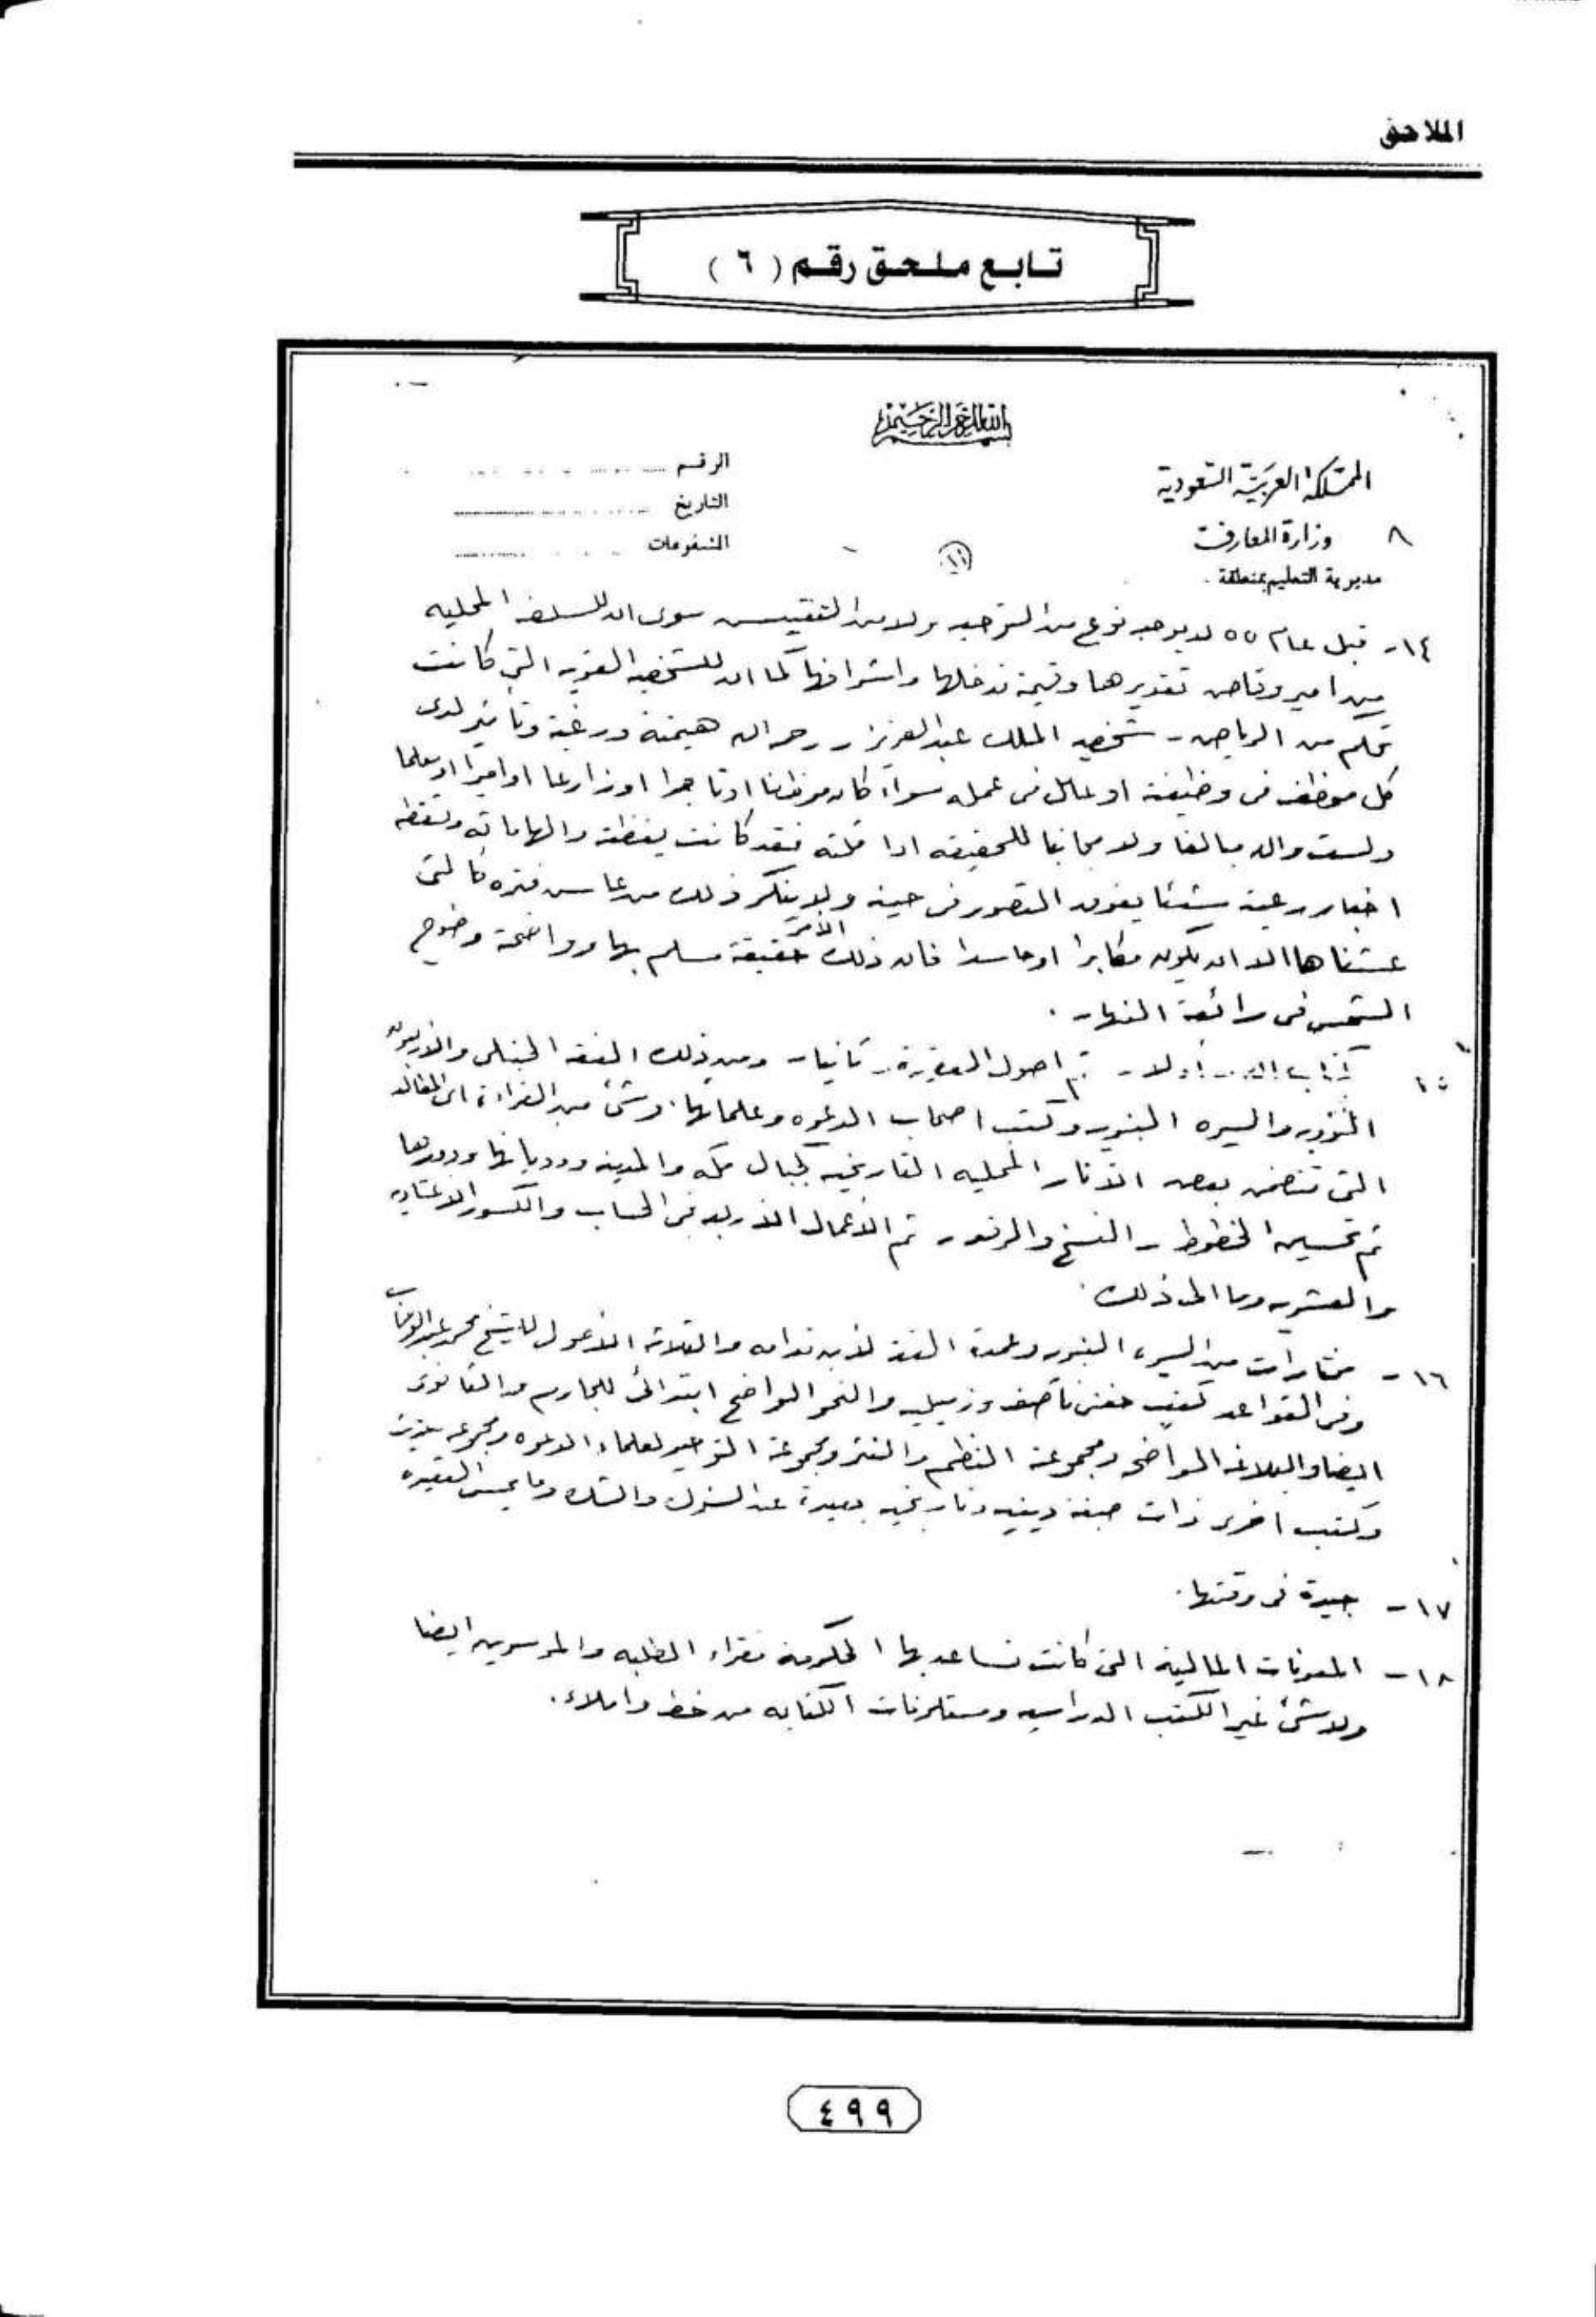 الملاحق
تابع ملحق رقم ( ٦ )
بسم الله الرحمن الرحيم
المملكة العربية السعودية
وزارة المعارف
٨
مديرية التعليم بمنطقة
الرقم
التاريخ
المشفوعات
١٤ـ قبل عام ٥٥ لا يوجد نوع من التوجيه ولا من التفتيش سوى ان للسلطه المحليه
من امير وقاضى تقديرها وقيمة تدخلها واشرافها كما ان للشخصيه القويه التى كانت
تحكم من الرياض ـ شخصية الملك عبدالعزيز ـ رحمه الله هيمنة ورغبة وتأثير لدى
كل موظف فى وظيفته او عامل فى عمله سواء كان موظفا او تاجرا او زارعا او اميرا او معلما
ولست والله مبالغا ولا مجانبا للحقيقه اذا قلته فقد كانت يقظته والهاماته وتسقطه
اخبار رعيته شيئا يفوق التصور فى حينه ولا ينكر ذلك من عاش فتره كالتى
عشناها الا ان يكون مكابرا او حاسدا فان ذلك الأمر حقيقة مسلم بها وواضحة وضوح
الشمس فى رائعة النهار .
١٥ كتاب الله أولا ـ ثم اصول العقيدة ـ ثانيا ـ ومن ذلك الفقه الحنبلى والاربعون
النوويه والسيره النبويه وكتب اصحاب الدعوه وعلمائها . وشئ من القراءة اى المقالة
التى تتضمن بعض الآثار المحليه التاريخيه كجبال مكه والمدينه ووديانها ودورها
ثم تحسين الخطوط ـ النسخ والرقعه ـ ثم الأعمال الاربعه فى الحساب والكسور الاعتياديه
والعشريه وما الى ذلك .
١٦ ـ مختارات من السيرة النبويه وعمدة الفقه لابن قدامه والثلاثة الاصول للشيخ محمد عبدالوهاب
وفى القواعد كتب حفنى ناصف وزميليه والنحو الواضح ابتدائى للجارم والثانوى
ايضا والبلاغه الواضحه ومجموعة النظم والنثر ومجموعة التوحيد لعلماء الدعوه ومجموعه
وكتب اخرى ذات صبغة دينيه وتاريخيه بعيدة عن الشرك والشك وما يمس العقيده
١٧ ـ جيدة فى وقتها .
١٨ ـ المعونات المالية التى كانت تساعد بها الحكومة فقراء الطلبه والمدرسين ايضا
ولا شئ غير الكتب الدراسيه ومستلزمات الكتابه من خط واملاء .
٤٩٩